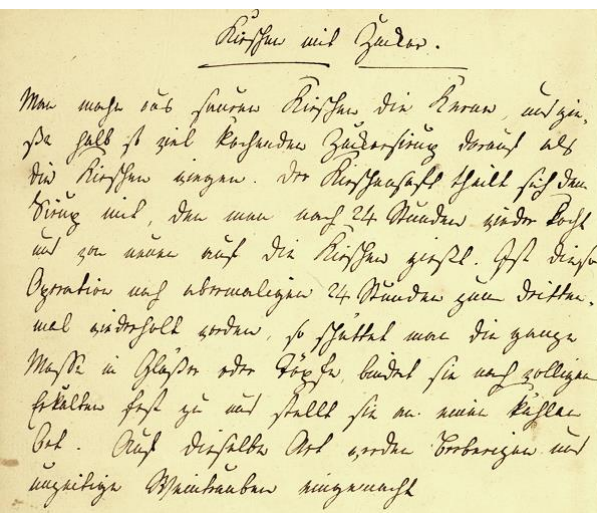 Kirschen mit Zucker.
Man mache aus sauren Kirschen die Kerne, und gie-
ße halb so viel kochenden Zuckersirup darauf als
die Kirschen wiegen. Der Kirschensaft theilt sich dem
Sirup mit, den man nach 24 Stunden wieder kocht
und von neuem auf die Kirschen gießt. Ist diese
Operation nach abermaligen 24 Stunden zum dritten-
mal wiederholt worden, so schüttet man die ganze
Masse in Gläser oder Töpfe, bindet sie nach völligem
Erkalten fest zu und stellt sie an einen kühlen
Ort. Auf dieselbe Art werden Berberizen und
unzeitige Weintrauben eingemacht